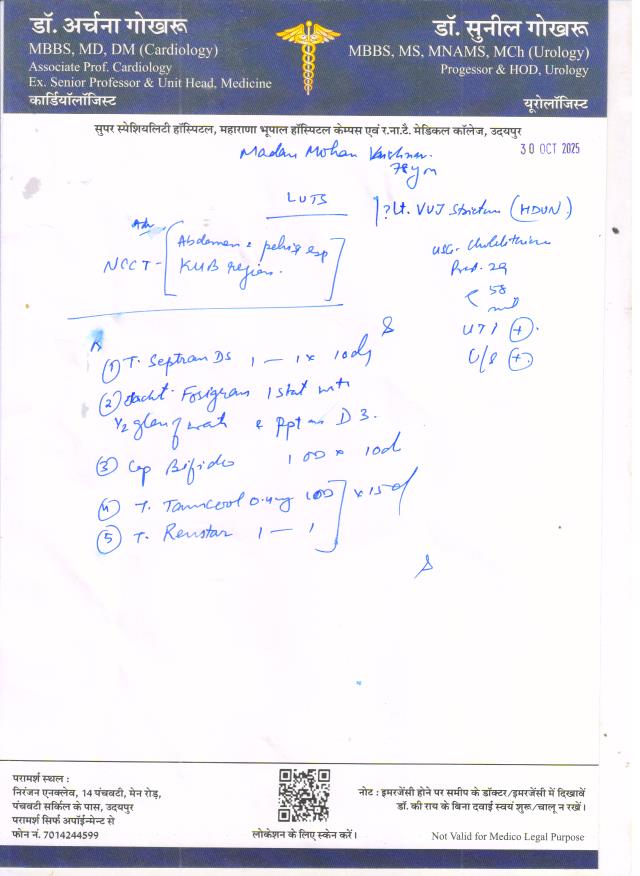 डॉ. अर्चना गोखरू
MBBS, MD, DM (Cardiology)
Associate Prof. Cardiology
Ex. Senior Professor & Unit Head, Medicine
कार्डियॉलॉजिस्ट
डॉ. सुनील गोखरू
MBBS, MS, MNAMS, MCh (Urology)
Progessor & HOD, Urology
यूरोलॉजिस्ट
सुपर स्पेशियलिटी हॉस्पिटल, महाराणा भूपाल हॉस्पिटल केम्पस एवं र.ना.टै. मेडिकल कॉलेज, उदयपुर
30 OCT 2025
Madan Mohan
LUTS
? Lt. VUJ Stricture (HDUN)
Adv
NCCT - Abdomen & pelvis esp
KUB region.
USG-
58
UTI +
C/S +
① T. Septran DS 1 — 1 x 10d
② Sachet. 1 stat with
1/2 glass of water D 3.
③ Cap Bifido 1 OD x 10d
④ T. 0.4mg 1 OD x 15d
⑤ T. Renstar 1 — 1
परामर्श स्थल :
निरंजन एनक्लेव, 14 पंचवटी, मेन रोड़,
पंचवटी सर्किल के पास, उदयपुर
परामर्श सिर्फ अपॉईन्मेन्ट से
फोन नं. 7014244599
लोकेशन के लिए स्केन करें।
नोट : इमरजेंसी होने पर समीप के डॉक्टर/इमरजेंसी में दिखावें
डॉ. की राय के बिना दवाई स्वयं शुरू/चालू न रखें।
Not Valid for Medico Legal Purpose